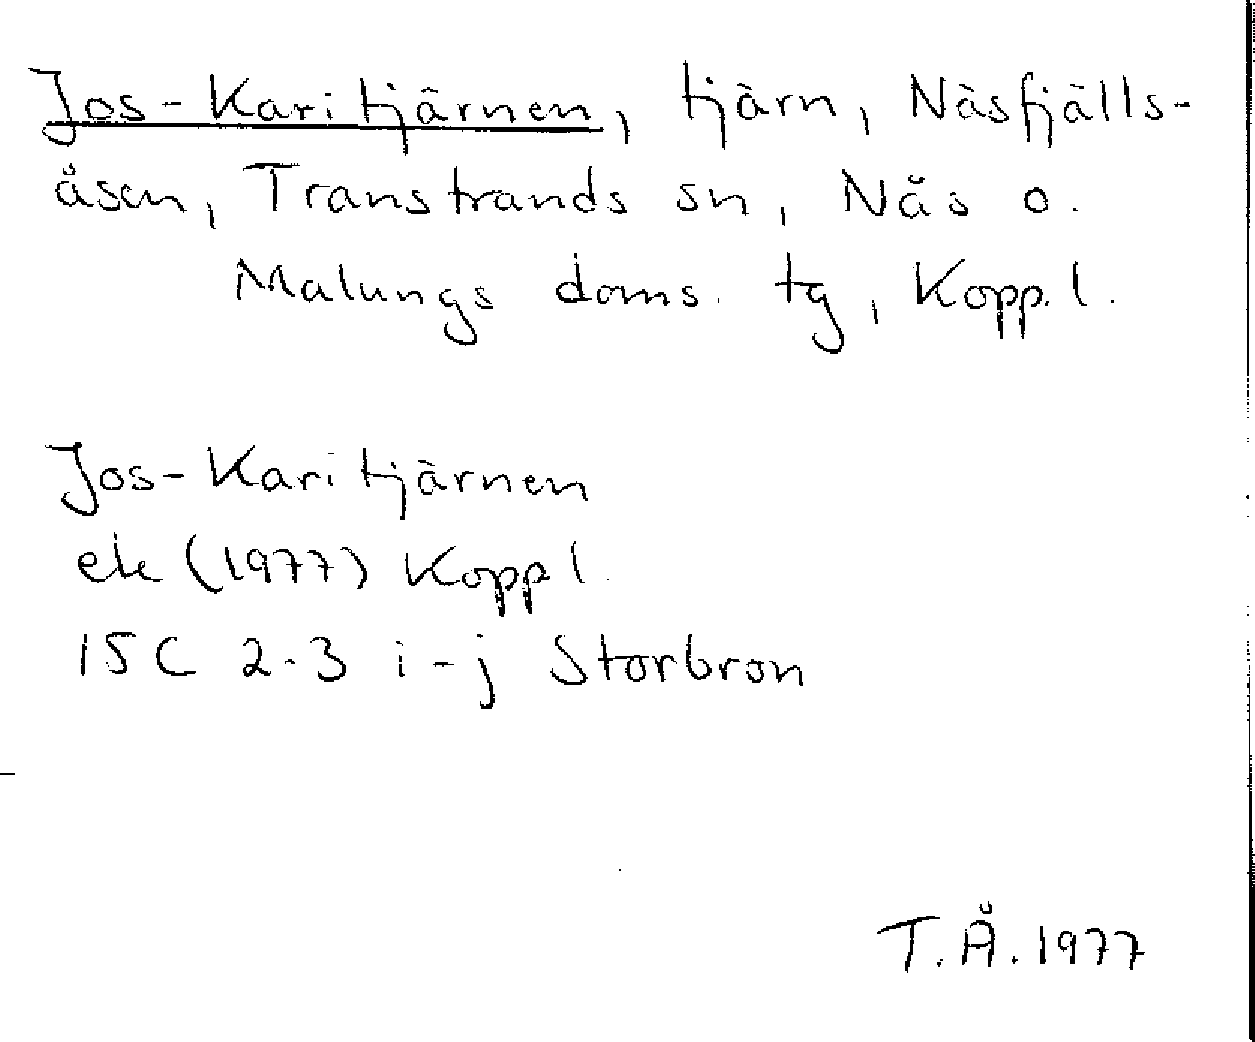 Jos-Karitjärnen, tjärn, Näsfjälls-
åsen, Transtrands sn, Näs o.
Malungs doms. tg, Kopp. l.
Jos-Karitjärnen
ek (1977) Kopp l.
15C 2-3 i-j Storbron
T.Å. 1977